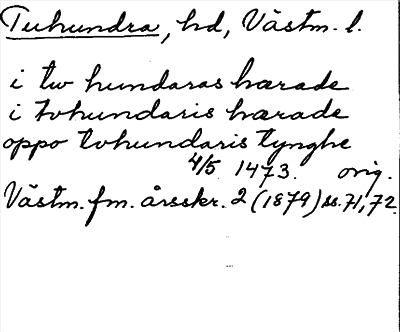 Tuhundra, hd, Västm. l.
i tw hundaras hærade
i tvhundaris hærade
oppo tvhundaris tynghe
4/5 1473. orig.
Västm. fm. årsskr. 2 (1879) ss. 71, 72.